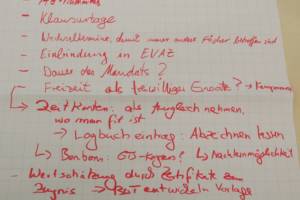 - Klausurtage
- Wechseltermine, damit immer andere Fächer betroffen sind
- Einführung in EVAZ
- Dauer des Mandats?
- Freizeit als freiwilliger Ersatz? →
→ Zeitkonten: als Ausgleich nehmen,
wo man fit ist
→ Logbucheintrag: Abzeichnen lassen
↳ Bonbon: ↳ Nachlernmöglichkeit
- Wertschätzung durch Zertifikate zum
Zeugnis → entwickeln Vorlage